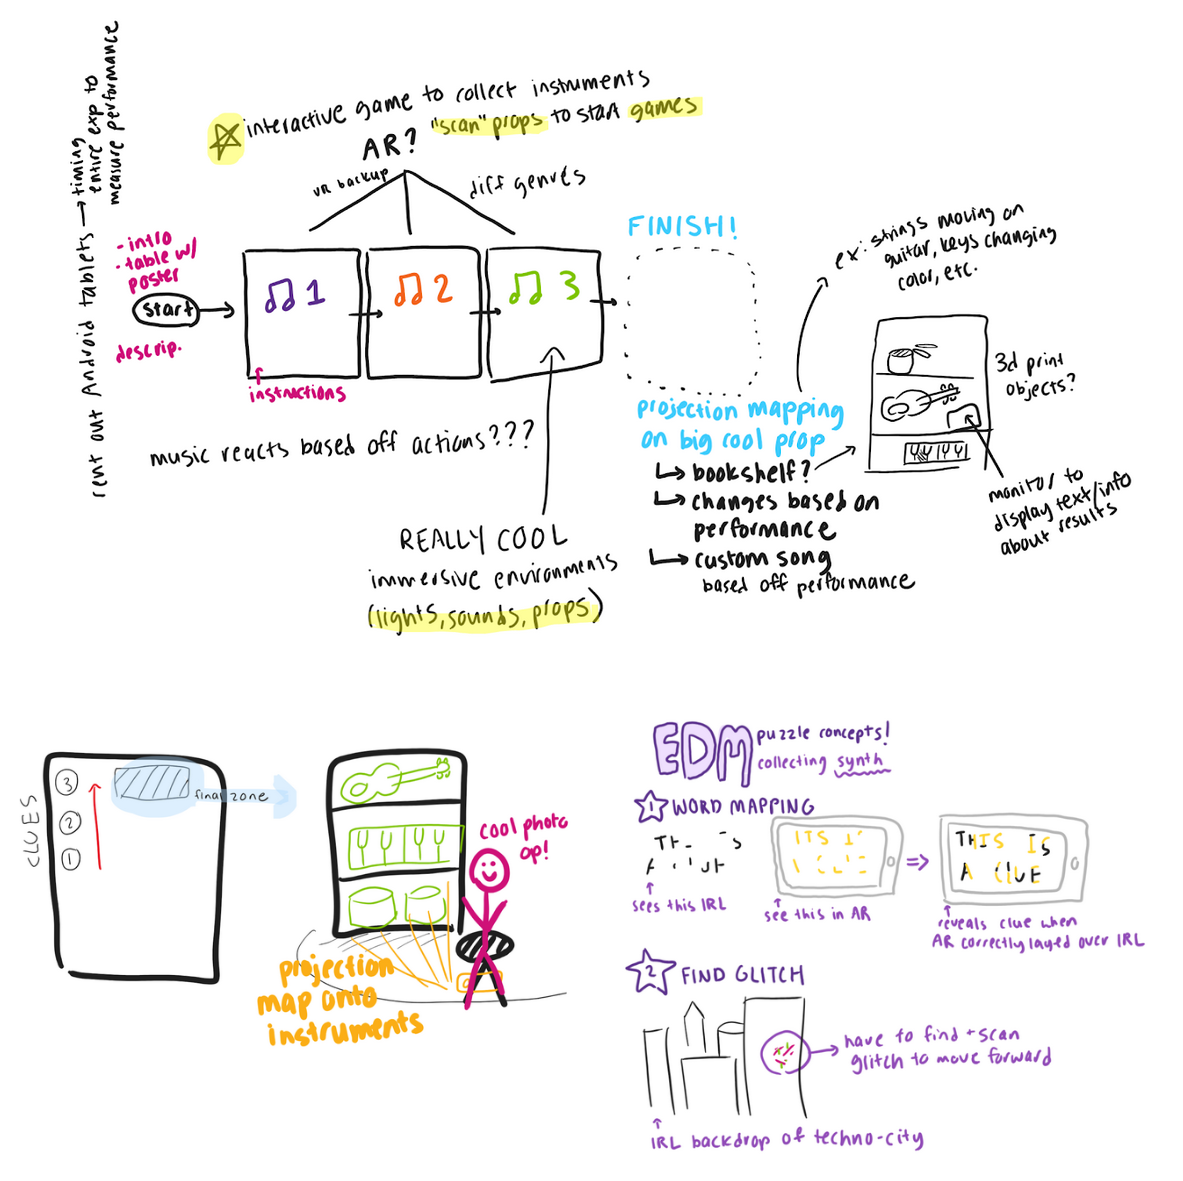 rent out Android tablets → timing
entire exp to
measure performance
interactive game to collect instruments
"scan" props to start games
AR?
VR backup
diff genres
- intro
- table w/
poster
start
descrip.
1
2
3
instructions
music reacts based off actions???
REALLY COOL
immersive environments
(lights, sounds, props)
FINISH!
projection mapping
on big cool prop
↳ bookshelf?
↳ changes based on
performance
↳ custom song
based off performance
ex: strings moving on
guitar, keys changing
color, etc.
3d print
objects?
monitor to
display text/info
about results
CLUES
3
2
1
final zone
cool photo
op!
projection
map onto
instruments
EDM puzzle concepts!
collecting synth
1 WORD MAPPING
sees this IRL
see this in AR
THIS IS
A CLUE
reveals clue when
AR correctly layed over IRL
2 FIND GLITCH
have to find + scan
glitch to move forward
IRL backdrop of techno-city